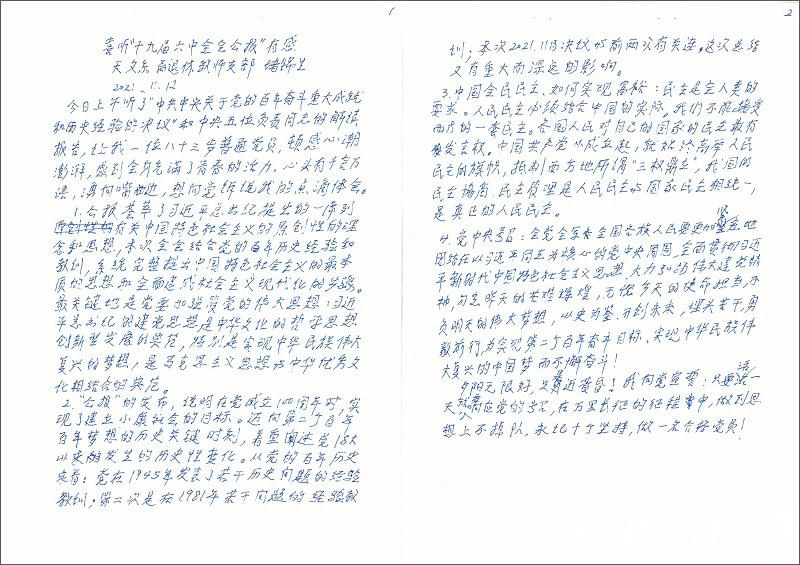 1
喜听“十九届六中全会公报”有感
天文系 离退休教师支部 堵锦生
2021.11.12
今日上午听了“中共中央关于党的百年奋斗重大成就
和历史经验的决议”和中央五位负责同志的解读
报告，让我一位八十三岁普通党员，顿感心潮
澎湃，感到全身充满了青春的活力，心头有千言万
语，涌向嘴边，想向党倾诉我的点滴体会。
1. 公报荟萃了习近平总书记提出的一系列
有关中国特色社会主义的原创性的理
念和思想，本次全会结合党的百年历史经验和
教训，系统完整提出中国特色社会主义的最本
质的思想和全面建成社会主义现代化的步骤。
最关键也是党要加强管党的伟大思想；习近
平总书记的建党思想是中华文化的哲学思想
创新型发展的典范，特别是实现中华民族伟大
复兴的梦想，是马克思主义思想与中华优秀文
化相结合的典范。
2. “公报”的发布，说明在党成立100周年时，实
现了建立小康社会的目标。迈向第二个百年
百年梦想的历史关键时刻，着重阐述党18大
以来所发生的历史性变化。从党的百年历史
来看：党在1945年发表了若干历史问题的经验
教训；第二次是在1981年若干问题的经验教
2
训；本次2021.11月决议与前两次有关连。这次总结
又有重大而深远的影响。
3. 中国全民民主，如何实现落秋：民主是全人类的
要求。人民民主必须结合中国的实际。我们不能接受
西方的一套民主。各国人民对自己的国家的民主最有
发言权。中国共产党从成立起，就始终高举人民
民主的旗帜，抵制西方地所谓“三权鼎立”，我国的
民主协商，民主管理是人民民主与国家民主相统一，
是真正的人民民主。
4. 党中央号召：全党全军全国各族人民要更加紧密地
团结在以习近平同志为核心的党中央周围，全面贯彻习近
平新时代中国特色社会主义思想，大力弘扬伟大建党精
神，勿忘昨天的苦难辉煌，无愧今天的使命担当，不
负明天的伟大梦想，以史为鉴、开创未来，埋头苦干、勇
毅前行，为实现第二个百年奋斗目标、实现中华民族伟
大复兴的中国梦而不懈奋斗！
夕阳无限好，只是近黄昏！我向党宣誓：只要活一
天就要响应党的号召，在万里长征的征程中，做到思
想上不掉队，永记十个坚持，做一名合格党员！